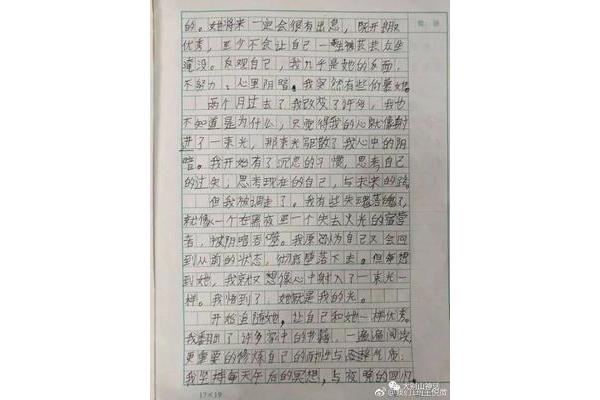 的。她将来一定会很有出息，既开朗又
优秀，至少不会让自己一生被芸芸众生
淹没。反观自己，我几乎是她的反面，
不努力、心里阴暗。我突然有些仰慕她。
两个月过去了我改变了许多，我也
不知道是为什么，只觉得我的心就像射
进了一束光，那束光驱散了我心中的阴
暗。我开始有了沉思的习惯，思考自己
的过失，思考现在的自己，与未来的路。
但我被调走了。我有些失魂落魄了，
就像一个在黑夜里一个失去火光的露营
者，被阴暗吞噬。我原以为自己又会回
到从前的状态，彻底堕落下去。但每想
到她，我就又想像心中射入了一束光一
样。我悟到了，她就是我的光。
开始追随她，让自己和她一样优秀。
我翻出了许多家中的书籍，一遍遍阅读，
更重要的修炼自己的
我坚持每天午后的冥想，与夜晚的
17×19
大别山神话
@我们1班王悦微